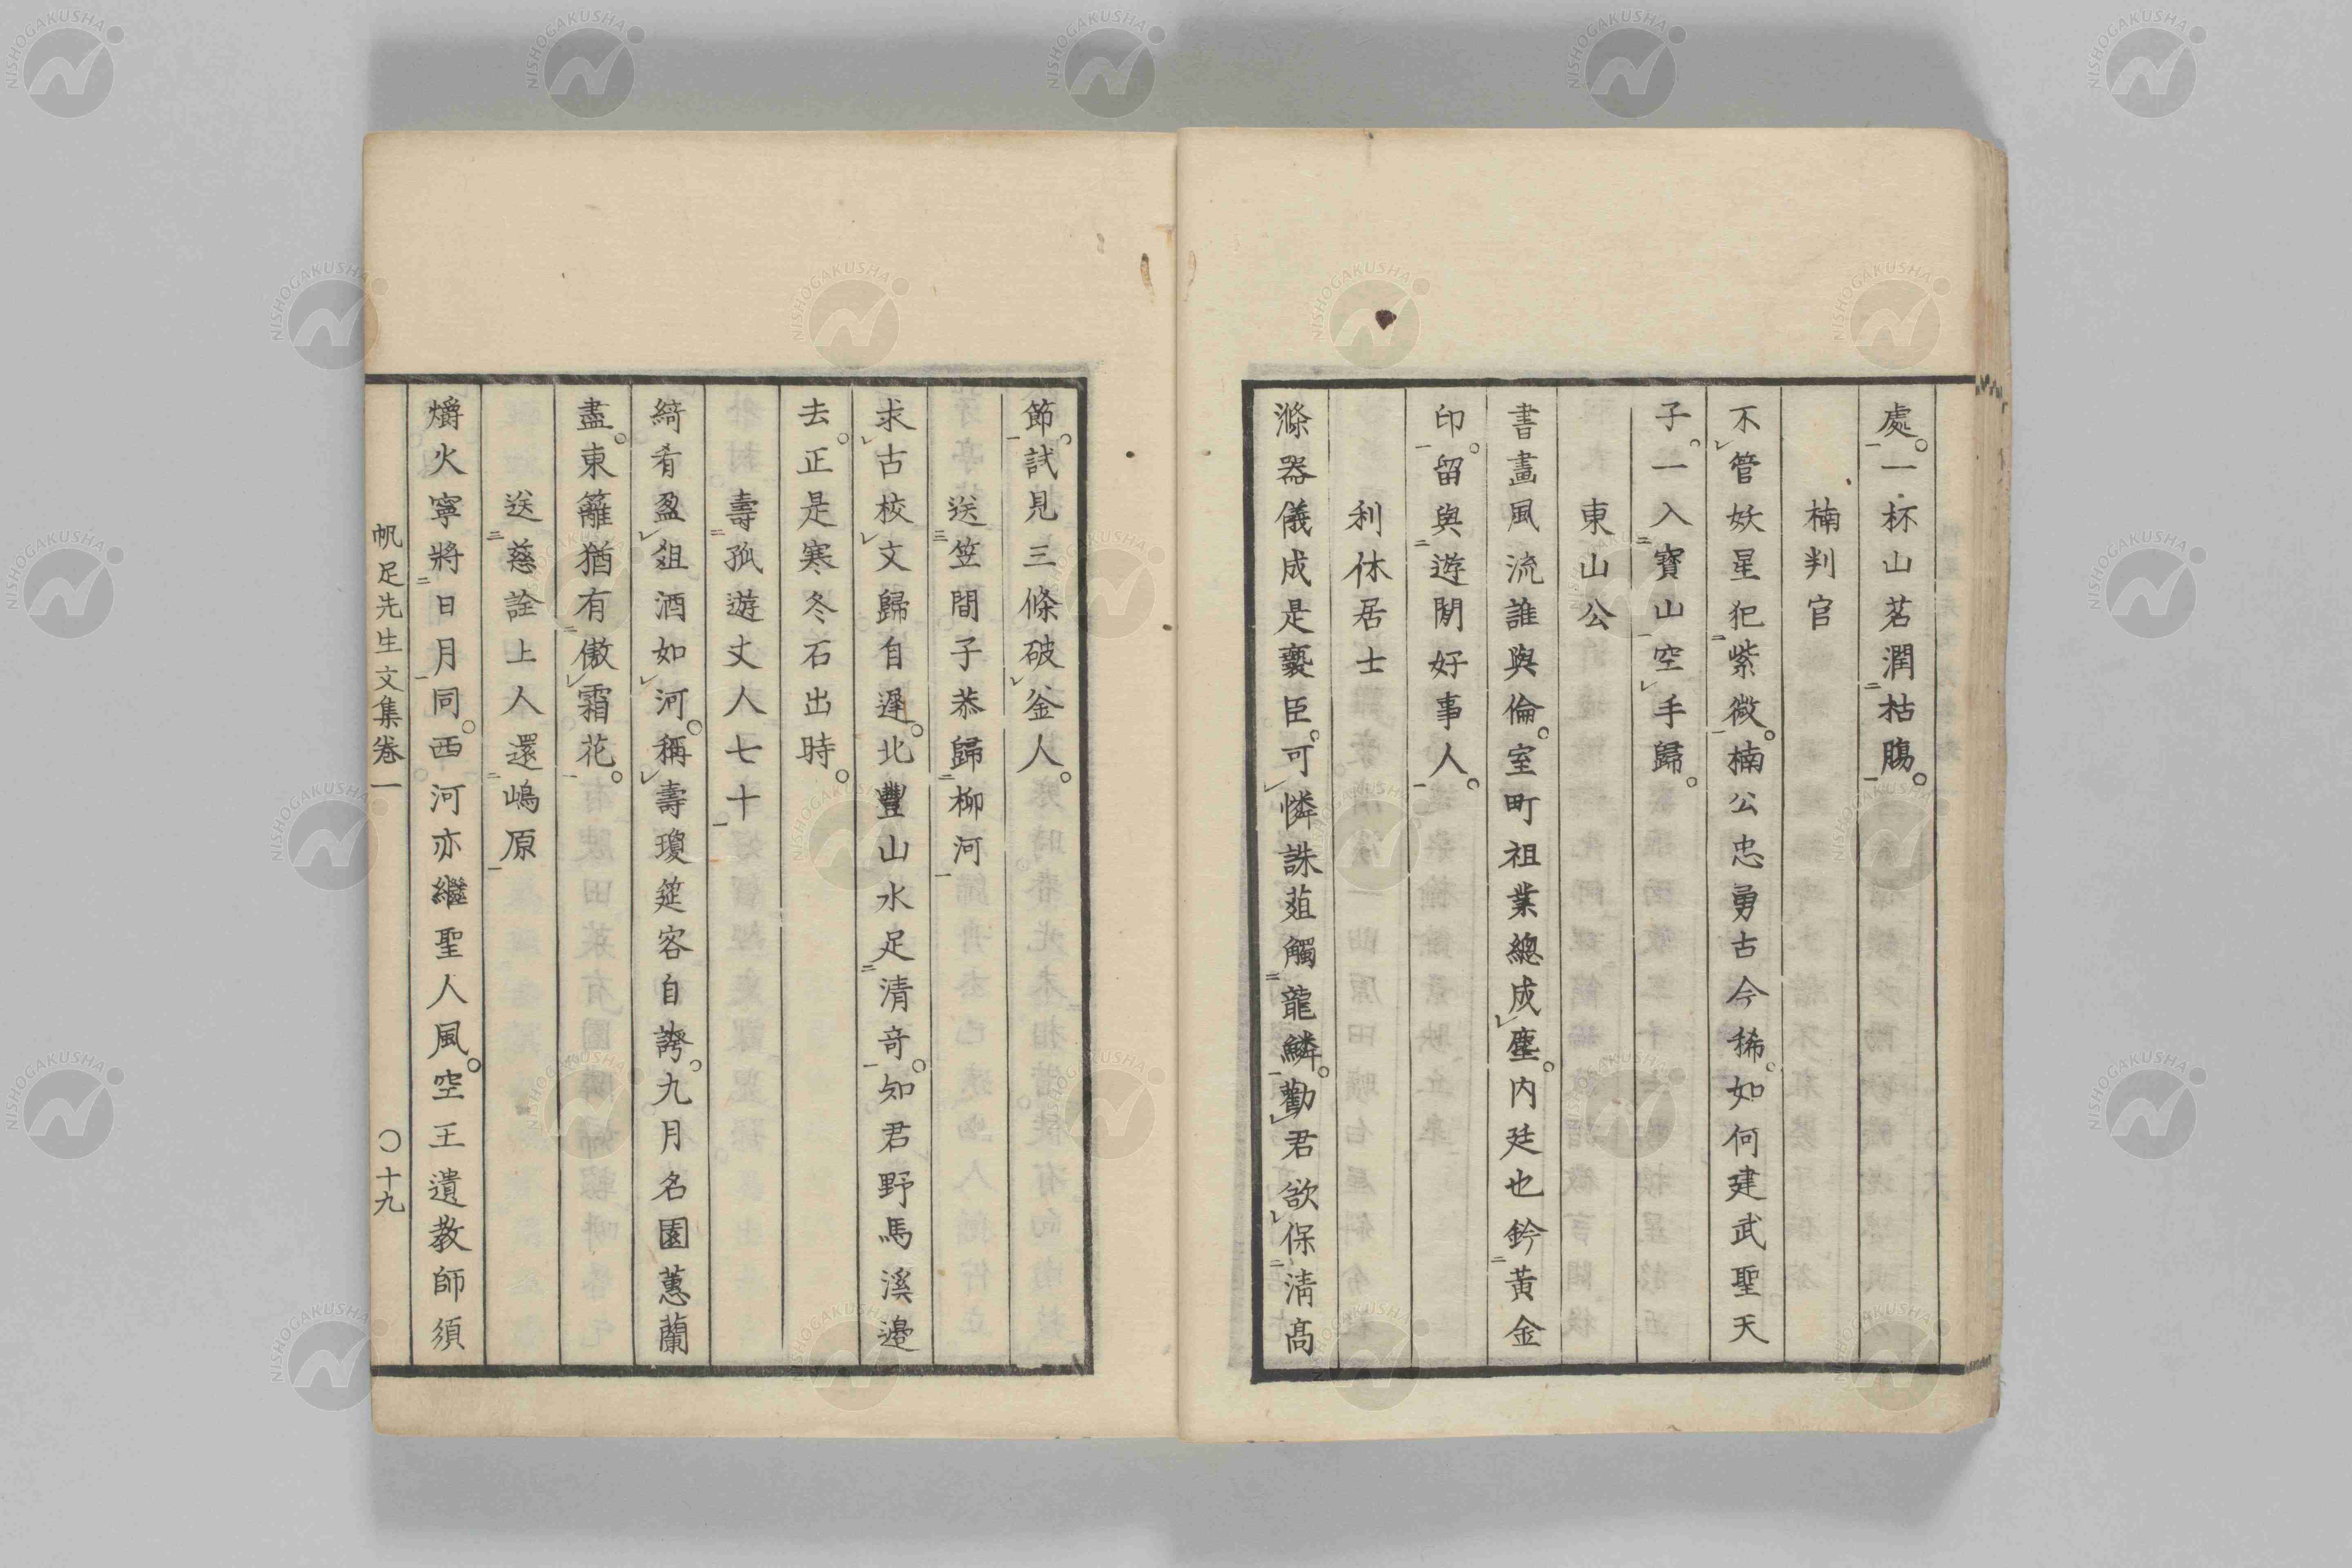 處。一杯山茗潤枯腸。
楠判官
不管妖星犯紫微。楠公忠勇古今稀。如何建武聖天
子。一入寶山空手歸。
東山公
書畫風流誰與倫。室町祖業總成塵。内廷也鈐黃金
印。留與遊閒好事人。
利休居士
滌器儀成是褻臣。可憐誅葅觸龍鱗。勸君欲保淸高
節。試見三條破釜人。
送笠間子恭歸柳河
求古校文歸自遲。北豐山水足清奇。知君野馬溪邊
去。正是寒冬石出時。
壽孤遊丈人七十
綺肴盈俎酒如河。稱壽瓊筵客自誇。九月名園蕙蘭
盡。東籬猶有傲霜花。
送慈詮上人還嶋原
爝火寧將日月同。西河亦繼聖人風。空王遺教師須
帆足先生文集卷一 〇十九
NISHOGAKUSHA